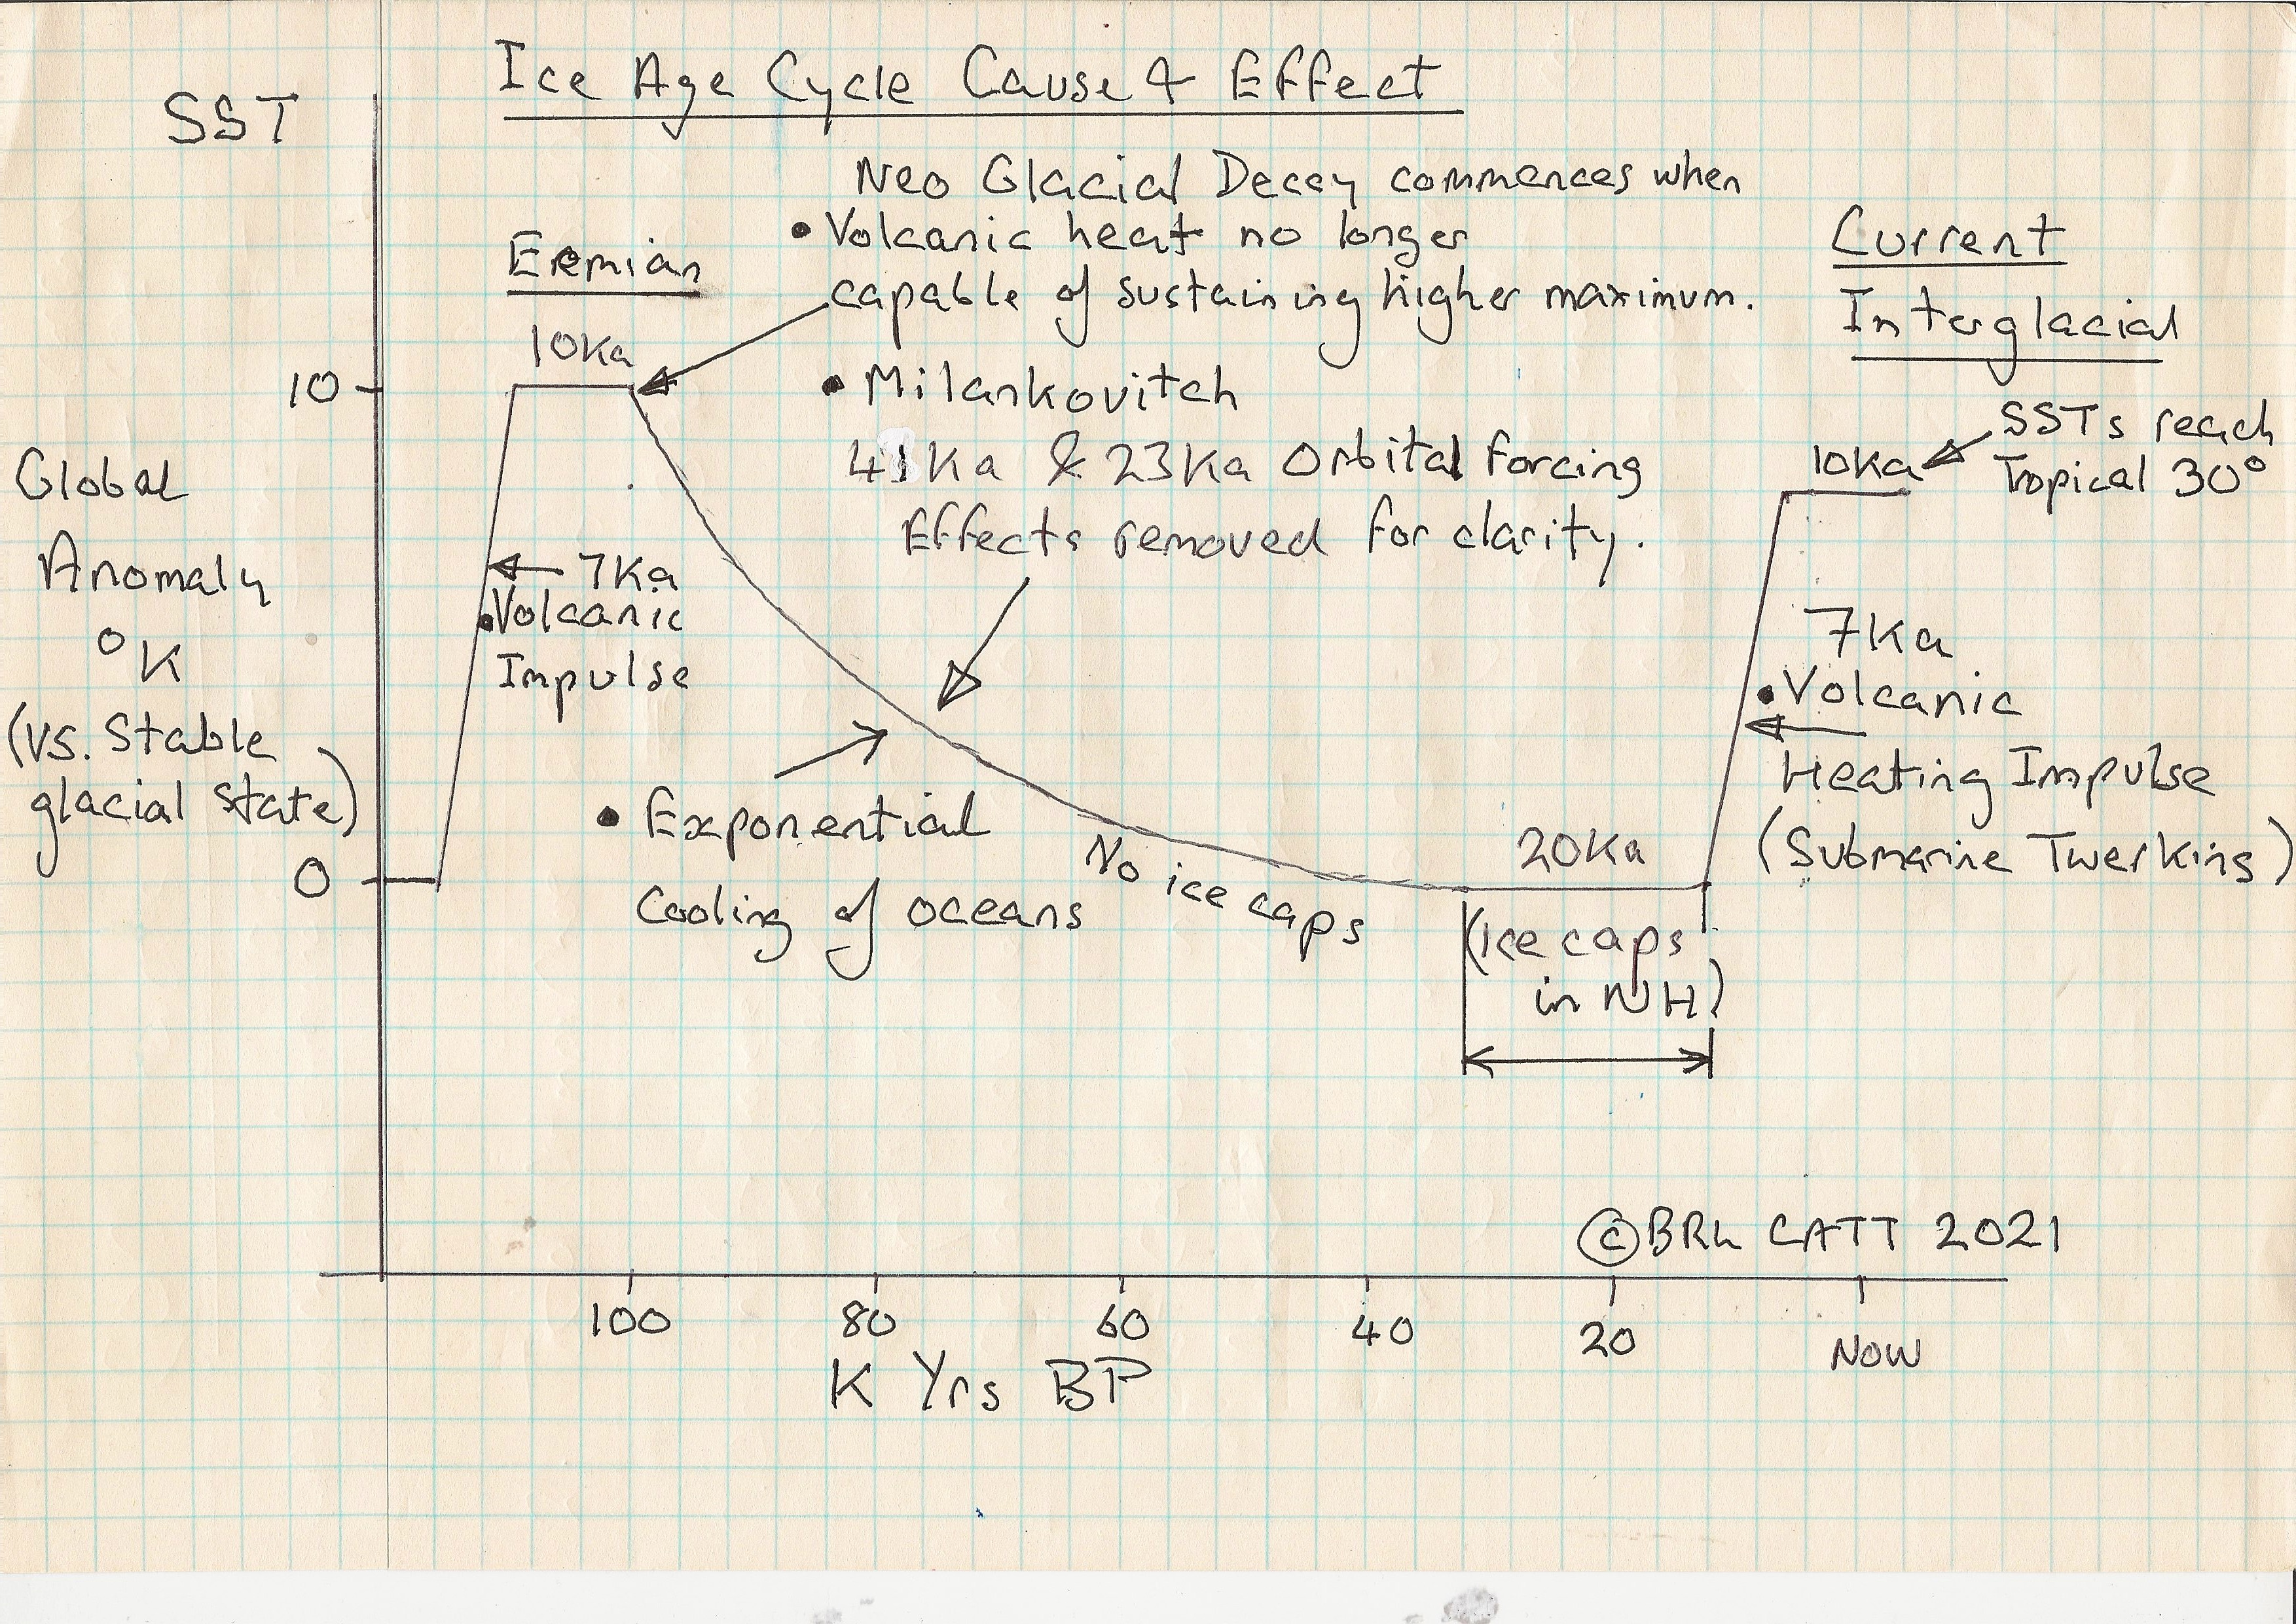 Ice Age Cycle Cause & Effect
SST
Neo Glacial Decay commences when
• Volcanic heat no longer
capable of sustaining higher maximum.
Eemian
10Ka
Current
Interglacial
10
• Milankovitch
41Ka & 23Ka Orbital Forcing
Effects removed for clarity.
SSTs reach
Tropical 30°
10Ka
Global
Anomaly
°K
(vs. Stable
glacial state)
7Ka
• Volcanic
Impulse
7Ka
• Volcanic
Heating Impulse
(Submarine Twerking)
• Exponential
Cooling of oceans
No ice caps
20Ka
0
(Ice caps
in NH)
© BRL CATT 2021
100 80 60 40 20 Now
K Yrs BP